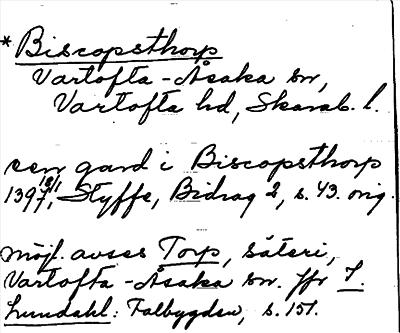 *Biscopsthorp
Vartofta-Åsaka sn,
Vartofta hd, Skarab. l.
een gard i Biscopsthorp
1397 18/1, Styffe, Bidrag 2, s. 43. orig.
möjl. avses Torp, säteri,
Vartofta-Åsaka sn. jfr I.
Lundahl: Falbygden, s. 151.